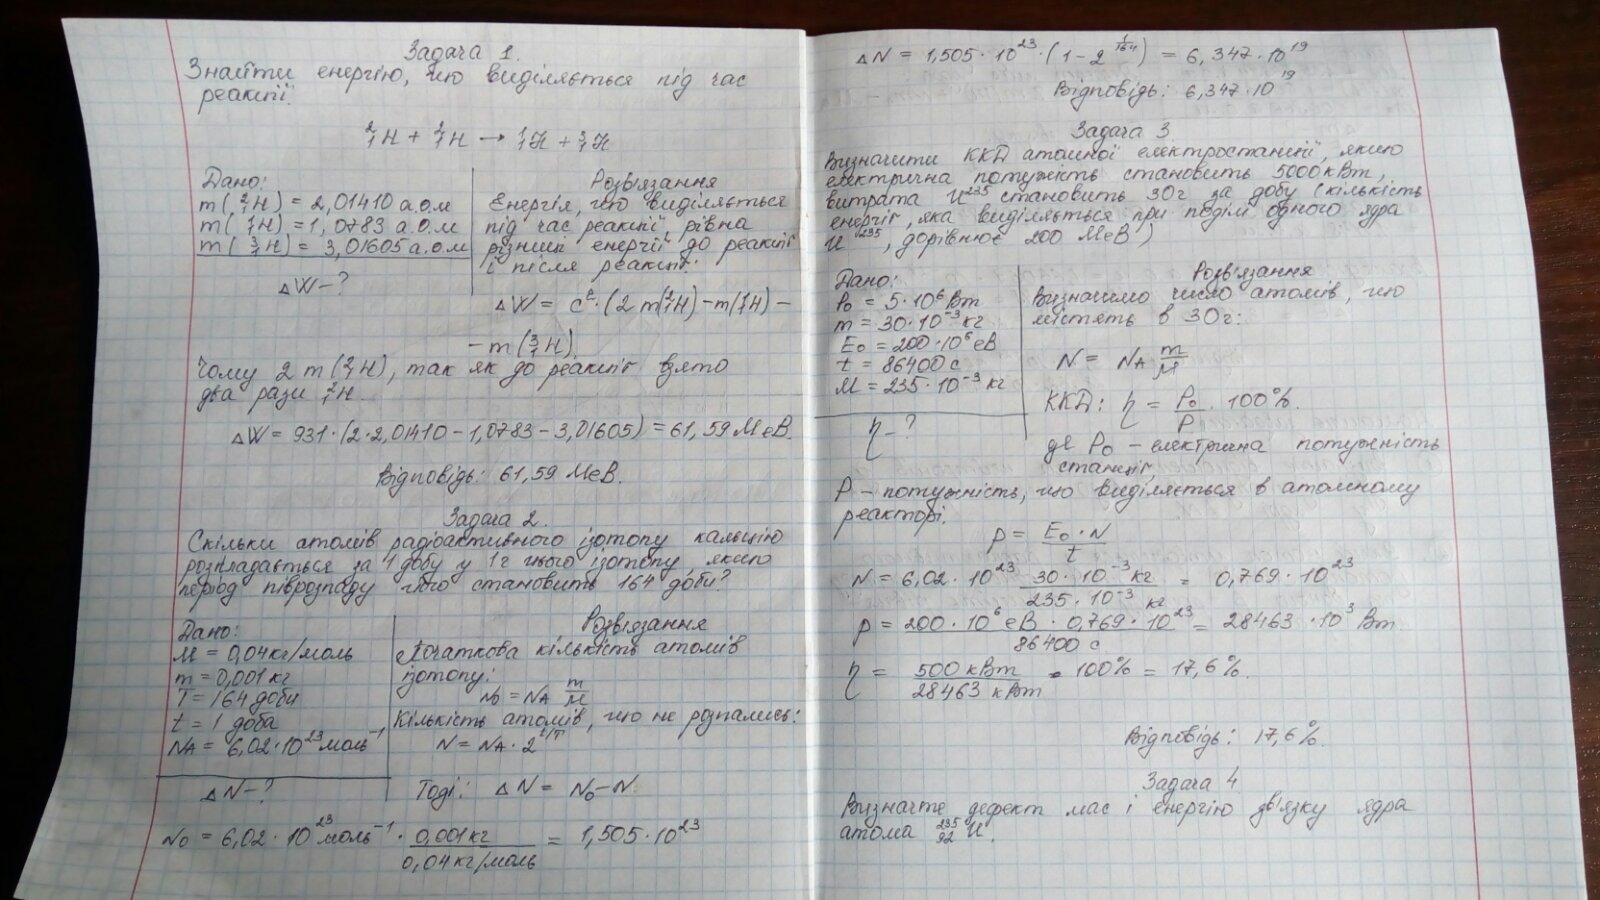 Задача 1.
Знайти енергію, що виділяється під час
реакції:
²₁H + ²₁H → ¹₁H + ³₁H
Дано:
m(²₁H) = 2,01410 а.о.м
m(¹₁H) = 1,0783 а.о.м
m(³₁H) = 3,01605 а.о.м
ΔW-?
Розв'язання
Енергія, що виділяється
під час реакції, рівна
різниці енергії до реакції
і після реакції:
ΔW = c²·(2m(²₁H) - m(¹₁H) -
- m(³₁H)
Чому 2m(²₁H), так як до реакції взято
два рази ²₁H.
ΔW = 931·(2·2,01410 - 1,0783 - 3,01605) = 61,59 МеВ.
Відповідь: 61,59 МеВ.
Задача 2.
Скільки атомів радіоактивного ізотопу кальцію
розпладається за 1 добу у 1г цього ізотопу, якщо
період піврозпаду його становить 164 доби?
Дано:
M = 0,04кг/моль
m = 0,001 кг
T = 164 доби
t = 1 доба
NA = 6,02·10²³ моль⁻¹
ΔN-?
Розв'язання
Початкова кількість атомів
ізотопу:
N₀ = NA m/M
Кількість атомів, що не розпались:
N = NA · 2^t/T
Тоді: ΔN = N₀ - N
N₀ = 6,02 · 10²³ моль⁻¹ · 0,001 кг / 0,04 кг/моль = 1,505·10²³
ΔN = 1,505·10²³·(1-2^1/164) = 6,347·10¹⁹
Відповідь: 6,347·10¹⁹
Задача 3
Визначити ККД атомної електростанції, якщо
електрична потужність становить 5000кВт,
витрата U²³⁵ становить 30г за добу (кількість
енергії, яка виділяється при поділі одного ядра
U²³⁵, дорівнює 200 МеВ)
Дано:
P₀ = 5·10⁶ Вт
m = 30·10⁻³ кг
E₀ = 200·10⁶ еВ
t = 86400 с
M = 235·10⁻³ кг
η-?
Розв'язання
Визначимо число атомів, що
містять в 30г:
N = NA m/M
ККД: η = P₀/P · 100%.
де P₀ - електрична потужність
станції,
P - потужність, що виділяється в атомному
реакторі.
P = E₀·N / t
N = 6,02 · 10²³ 30·10⁻³ кг / 235·10⁻³ кг = 0,769·10²³
P = 200·10⁶ еВ · 0,769·10²³ / 86400 с = 28463 ·10³ Вт.
η = 500 кВт / 28463 кВт · 100% = 17,6%.
Відповідь: 17,6%.
Задача 4
Визначте дефект мас і енергію зв'язку ядра
атома ²³⁵₉₂U.